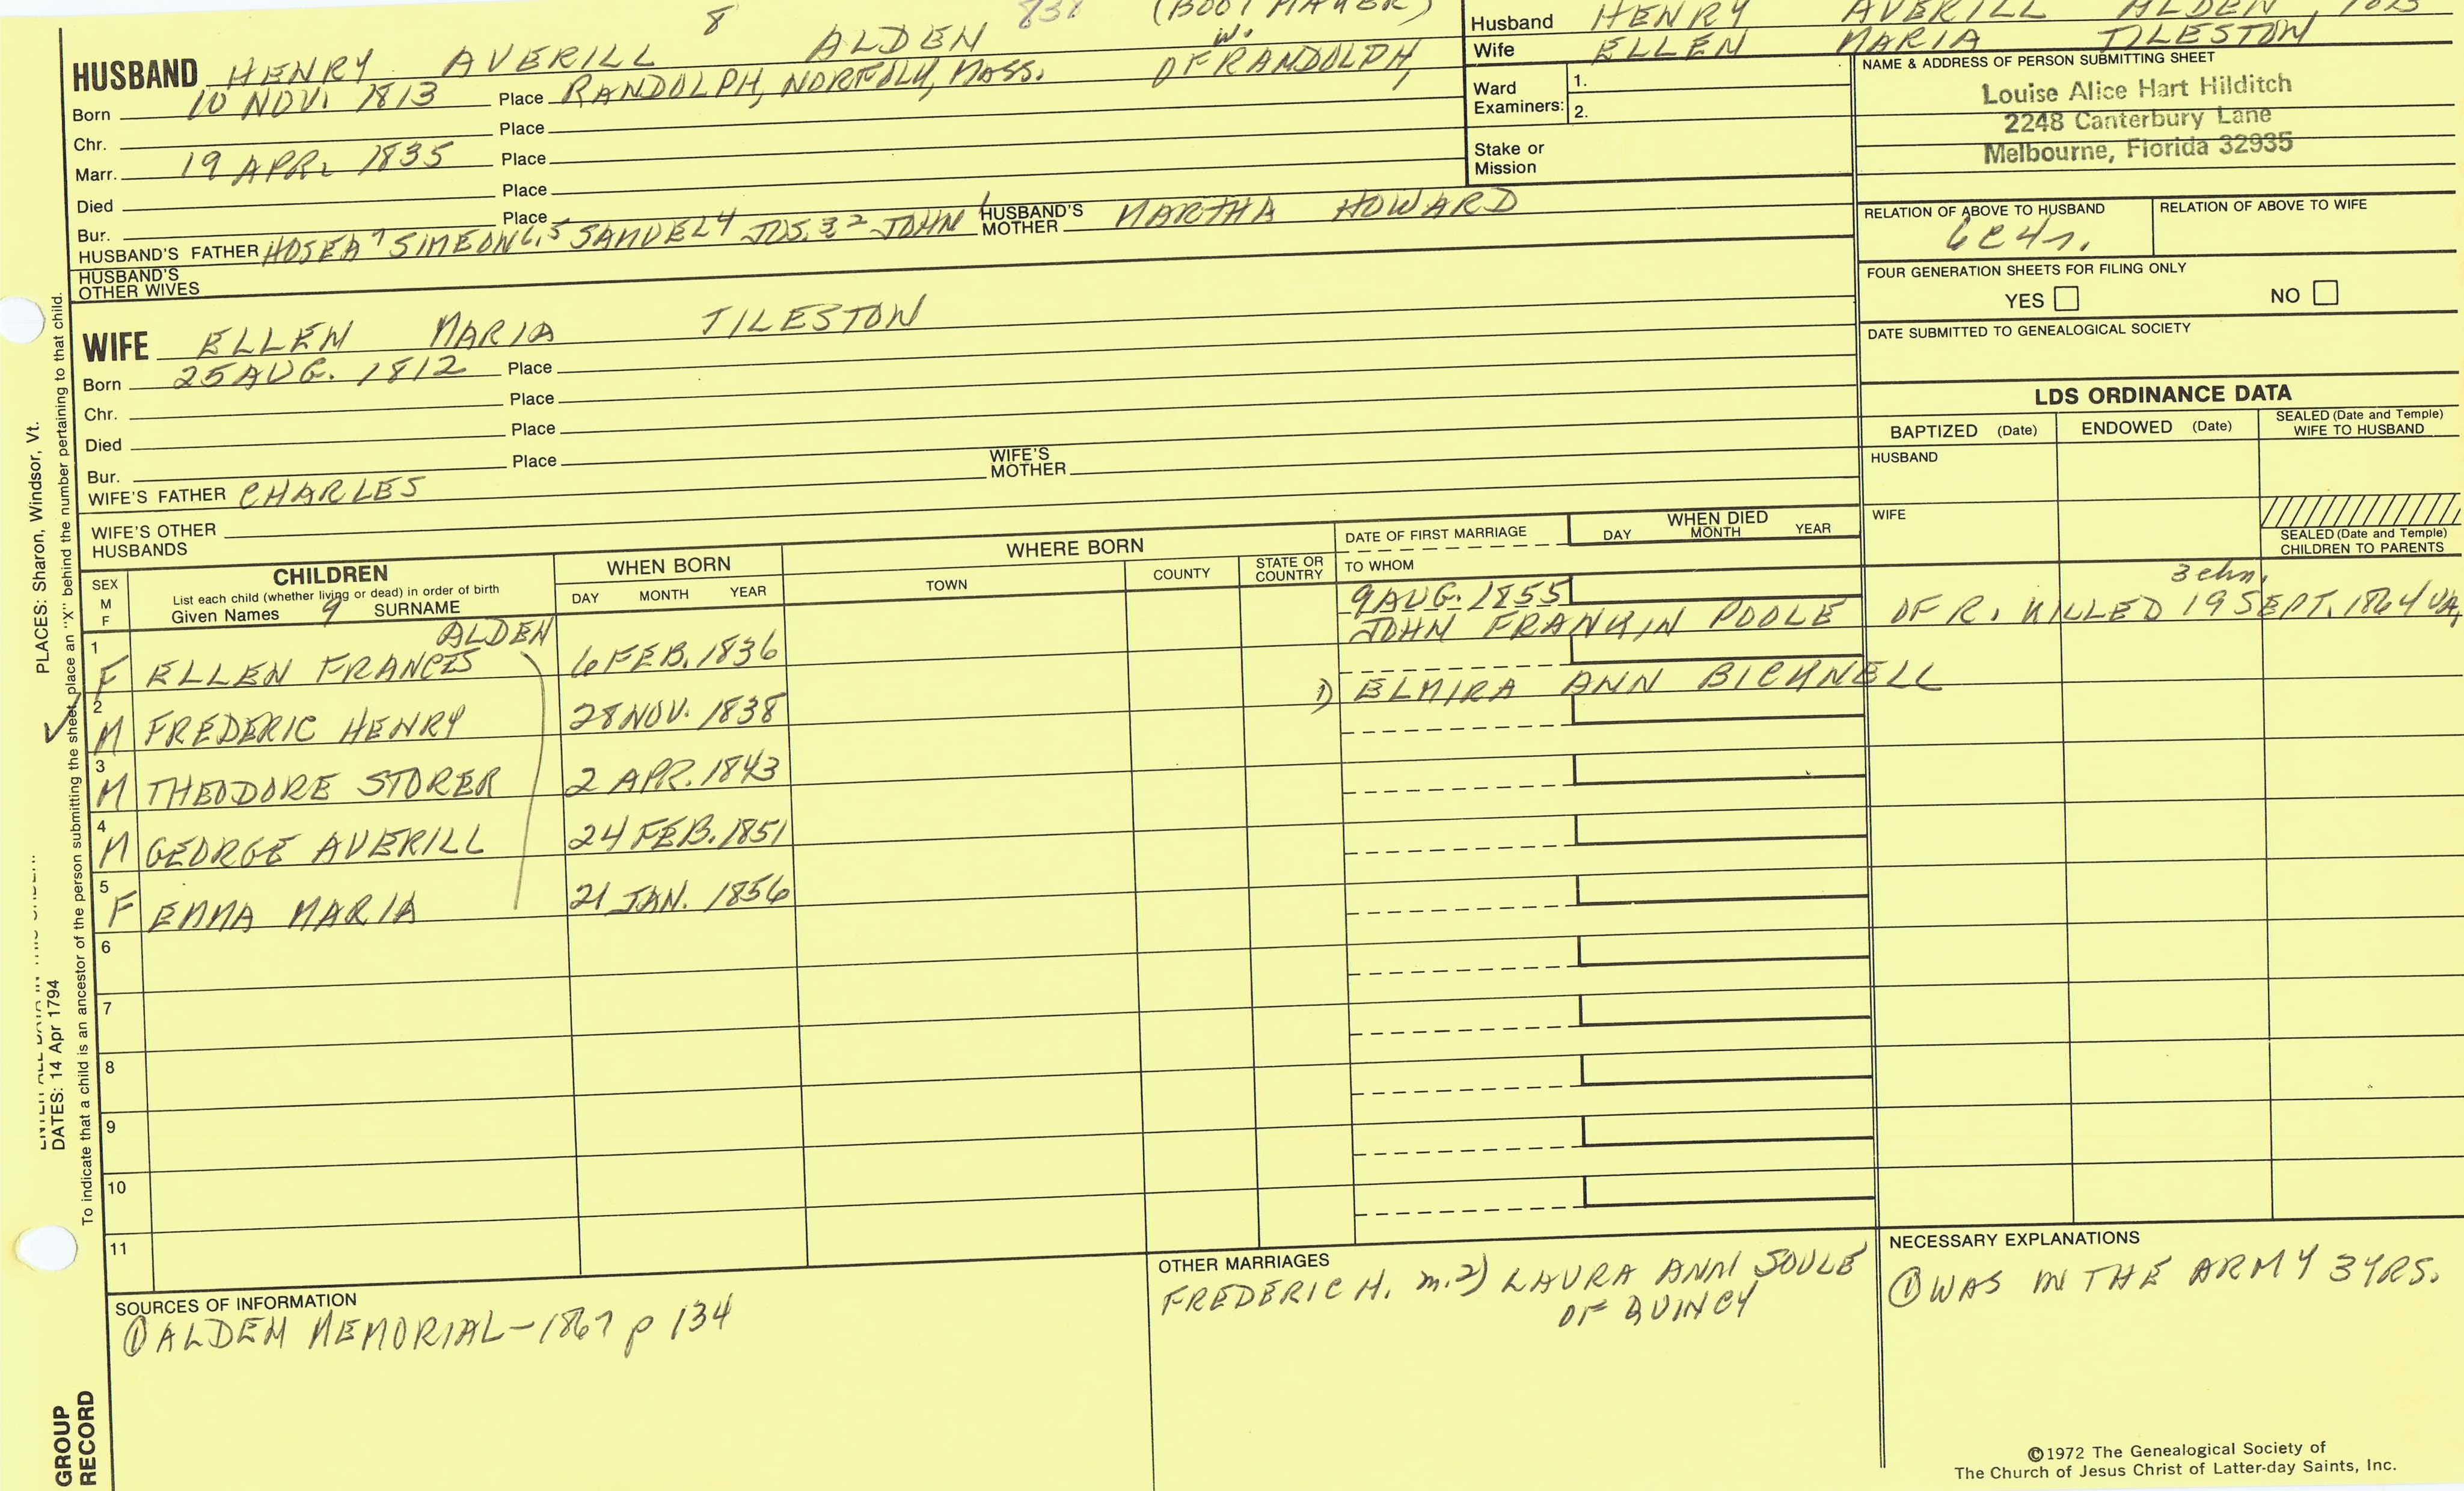 8
838 (BOOT MAKER)
HUSBAND HENRY AVERILL ALDEN
Born 10 NOV. 1813 Place RANDOLPH, NORFOLK, MASS. W. OF RANDOLPH,
Chr. Place
Marr. 19 APR. 1835 Place
Died Place
Bur. Place
HUSBAND'S FATHER HOSEA 7 SIMEON 6,5 SAMUEL 4 JOS. 3 2 JOHN 1 HUSBAND'S MOTHER MARTHA HOWARD
HUSBAND'S OTHER WIVES
Husband HENRY AVERILL ALDEN
Wife ELLEN MARIA TILESTON
Ward Examiners: 1.
2.
Stake or Mission
NAME & ADDRESS OF PERSON SUBMITTING SHEET
Louise Alice Hart Hilditch
2248 Canterbury Lane
Melbourne, Florida 32935
RELATION OF ABOVE TO HUSBAND RELATION OF ABOVE TO WIFE
6C4r.
FOUR GENERATION SHEETS FOR FILING ONLY
YES NO
DATE SUBMITTED TO GENEALOGICAL SOCIETY
WIFE ELLEN MARIA TILESTON
Born 25 AUG. 1812 Place
Chr. Place
Died Place
Bur. Place
WIFE'S FATHER CHARLES WIFE'S MOTHER
WIFE'S OTHER HUSBANDS
LDS ORDINANCE DATA
BAPTIZED (Date) ENDOWED (Date) SEALED (Date and Temple) WIFE TO HUSBAND
HUSBAND
WIFE
SEALED (Date and Temple) CHILDREN TO PARENTS
SEX M F
CHILDREN
List each child (whether living or dead) in order of birth
Given Names 9 SURNAME
WHEN BORN
DAY MONTH YEAR
WHERE BORN
TOWN COUNTY STATE OR COUNTRY
DATE OF FIRST MARRIAGE
TO WHOM
WHEN DIED
DAY MONTH YEAR
1 F ELLEN FRANCES ALDEN 6 FEB. 1836 9 AUG. 1855
JOHN FRANKIN POOLE OF R. KILLED 19 SEPT. 1864 VA,
3 chn.
2 M FREDERIC HENRY 28 NOV. 1838 1) ELMIRA ANN BICKNELL
3 M THEODORE STORER 2 APR. 1843
4 M GEORGE AVERILL 24 FEB. 1851
5 F EMMA MARIA 21 JAN. 1856
6
7
8
9
10
11
SOURCES OF INFORMATION
① ALDEN MEMORIAL - 1867 p 134
OTHER MARRIAGES
FREDERIC H. m. 2) LAURA ANN SOULE
OF QUINCY
NECESSARY EXPLANATIONS
① WAS IN THE ARMY 3 YRS.
©1972 The Genealogical Society of
The Church of Jesus Christ of Latter-day Saints, Inc.
PLACES: Sharon, Windsor, Vt.
DATES: 14 Apr 1794
To indicate that a child is an ancestor of the person submitting the sheet, place an "X" behind the number pertaining to that child.
GROUP
RECORD